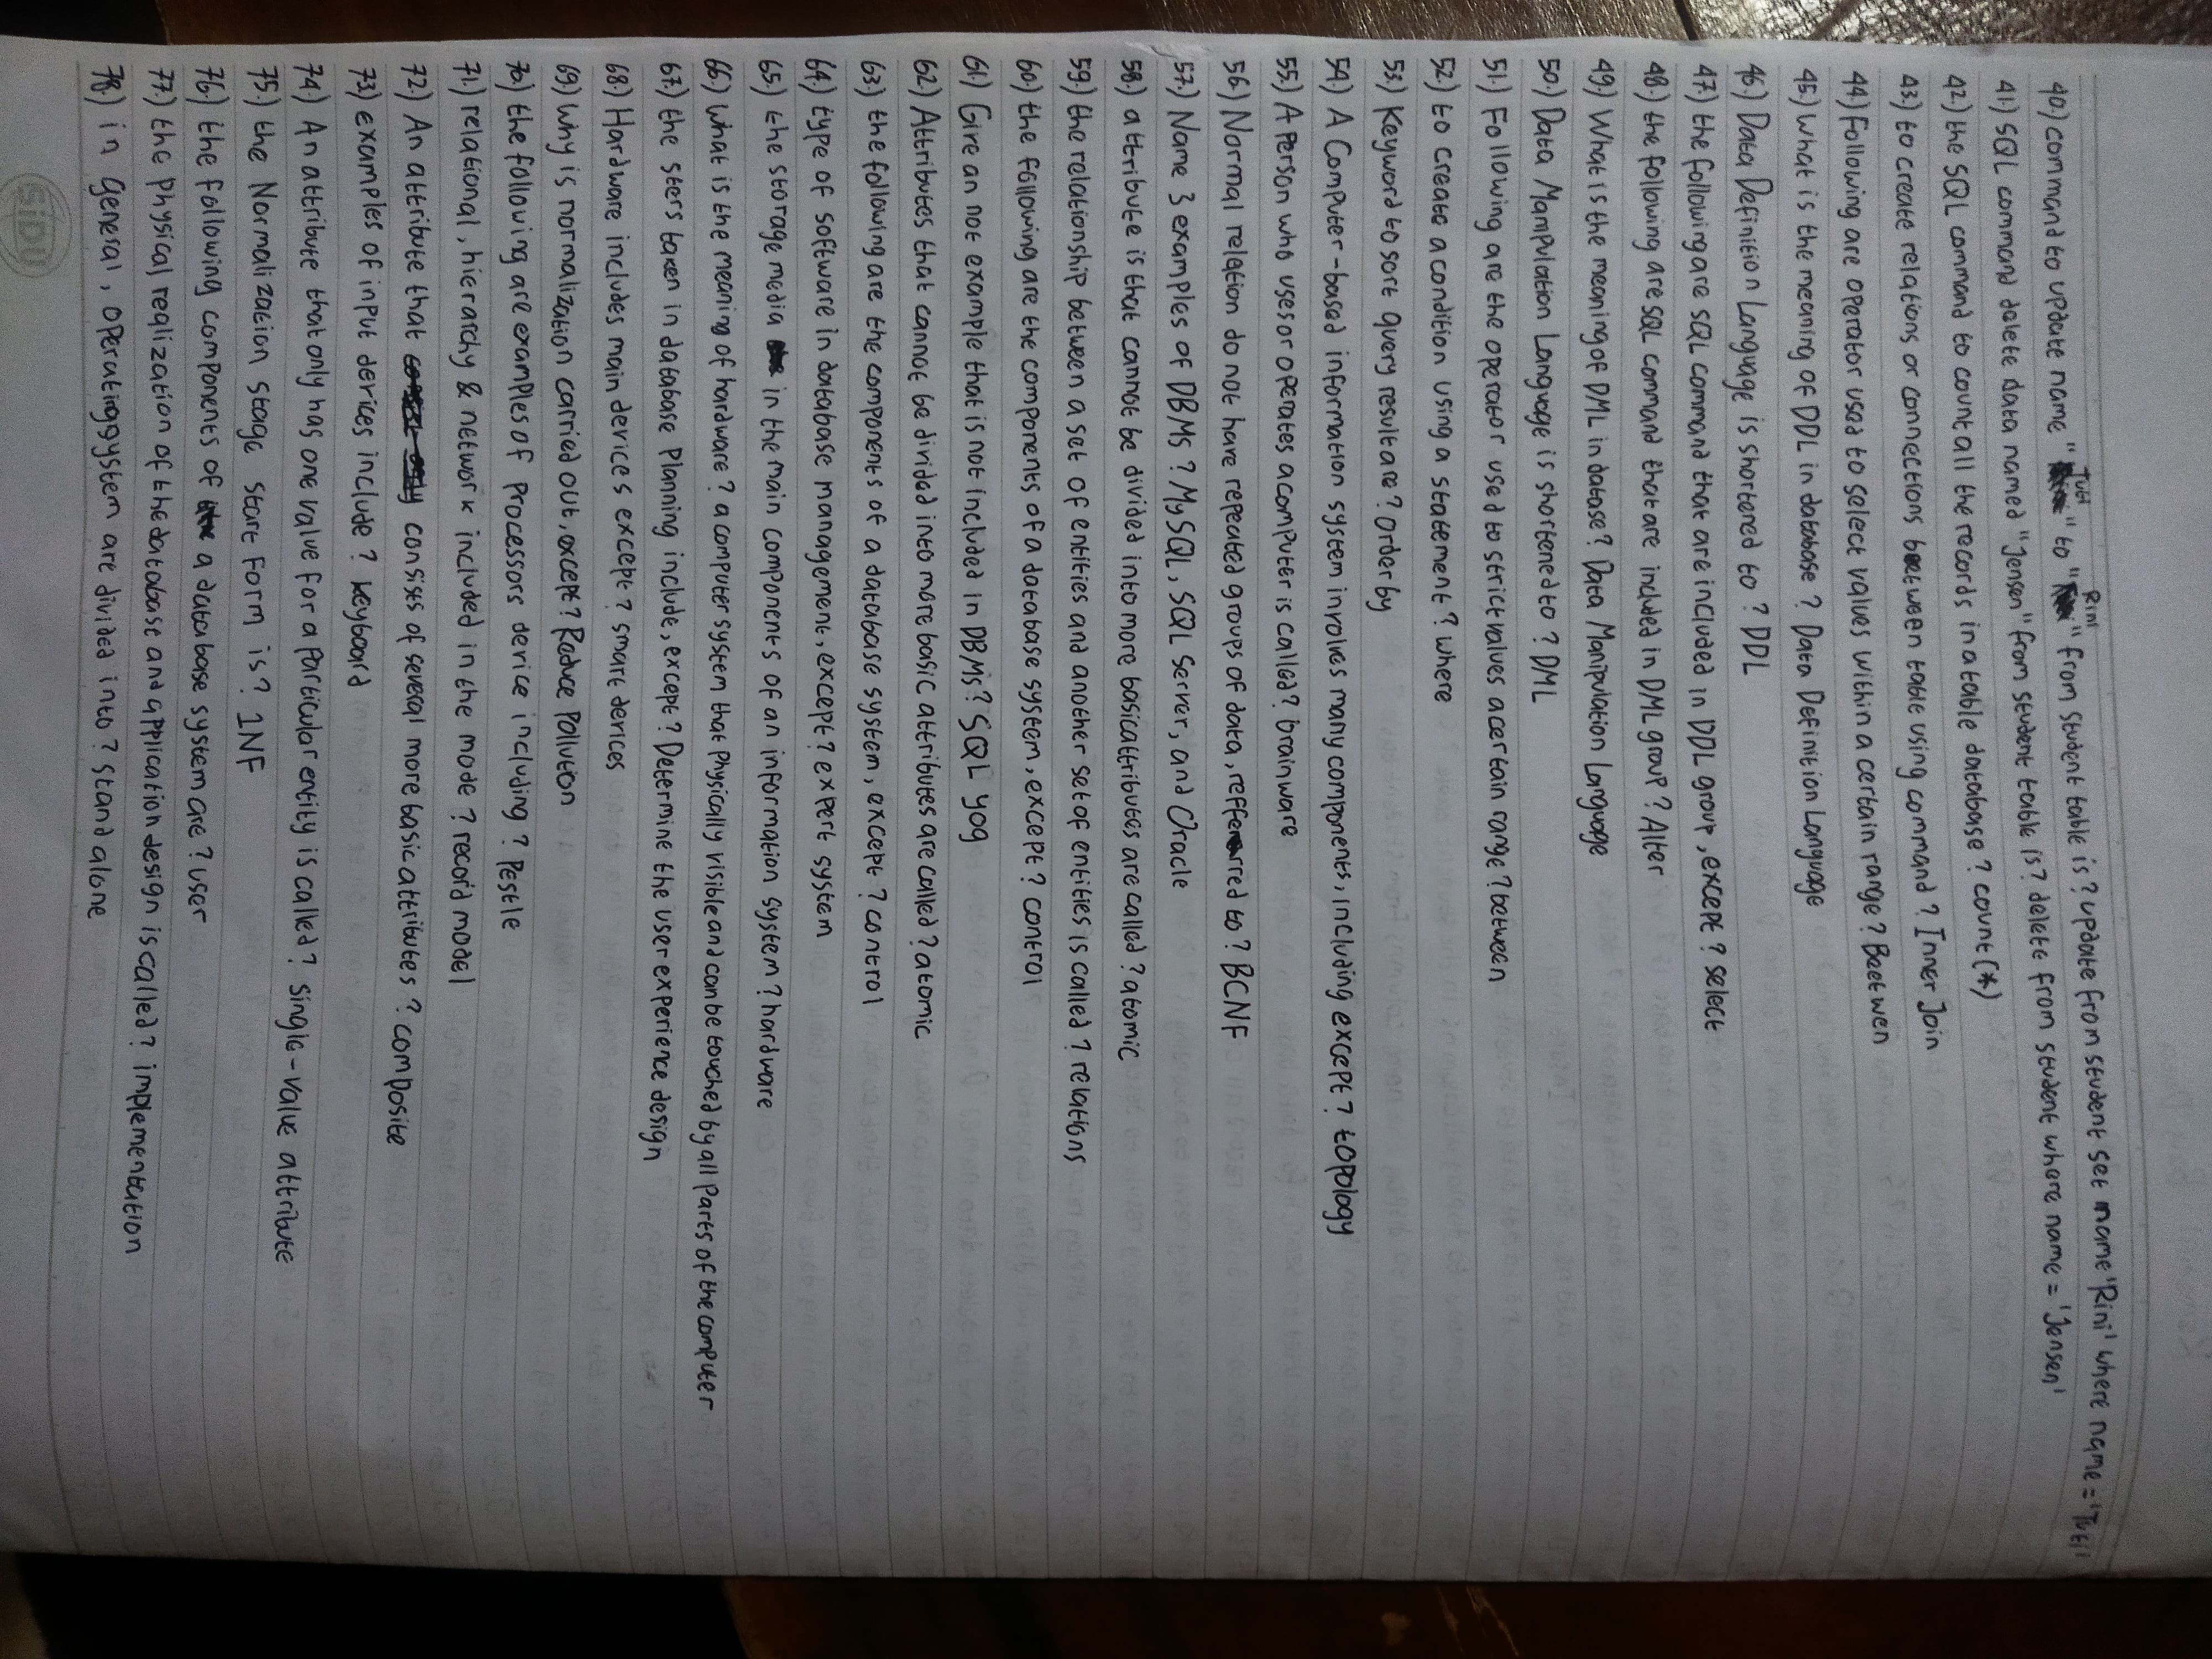 40.) command to update name "Tuti" to "Rini" from student table is? update from student set name 'Rini' where name = 'Tuti'
41.) SQL command delete data named "Jensen" from student table is? delete from student where name = 'Jensen'
42.) the SQL command to count all the records in a table database? count (*)
43.) to create relations or connections beetween table using command? Inner Join
44.) Following are operator used to select values within a certain range? Beetwen
45.) What is the meaning of DDL in database? Data Definition Language
46.) Data Definition Language is shortened to? DDL
47.) the following are SQL command that are included in DDL group, except? select
48.) the following are SQL command that are included in DML group? Alter
49.) What is the meaning of DML in datase? Data Manipulation Language
50.) Data Manipulation Language is shortened to? DML
51.) Following are the operator used to strict values a certain range? between
52.) to create a condition using a statement? where
53.) Keyword to sort query result are? order by
54.) A Computer-based information system involves many components, including except? topology
55.) A Person who uses or operates a computer is called? brainware
56.) Normal relation do not have repeated groups of data, refferred to? BCNF
57.) Name 3 examples of DBMs? MySQL, SQL Server, and Oracle
58.) attribute is that cannot be divided into more basic attributes are called? atomic
59.) the relationship between a set of entities and another set of entities is called? relations
60.) the following are the components of a database system, except? control
61.) Give an not example that is not included in DBMs? SQL yog
62.) Attributes that cannot be divided into more basic attributes are called? atomic
63.) the following are the components of a database system, except? control
64.) type of software in database management, except? expert system
65.) the storage media in the main components of an information system? hardware
66.) What is the meaning of hardware? a computer system that physically visible and can be touched by all parts of the computer
67.) the sters taken in database Planning include, except? Determine the user experience design
68.) Hardware includes main devices except? smart devices
69.) Why is normalization carried out, except? Reduce Pollution
70.) the following are examples of processors device including? Pestle
71.) relational, hierarchy & network included in the mode? record model
72.) An attribute that consists of several more basic attributes? composite
73.) examples of input devices include? keyboard
74.) An attribute that only has one value for a particular entity is called? single-value attribute
75.) the Normalization stage start Form is? 1NF
76.) the following components of a database system are? user
77.) the Physical realization of the database and application design is called? implementation
78.) in general, operatingsystem are divided into? stand alone
SiDU